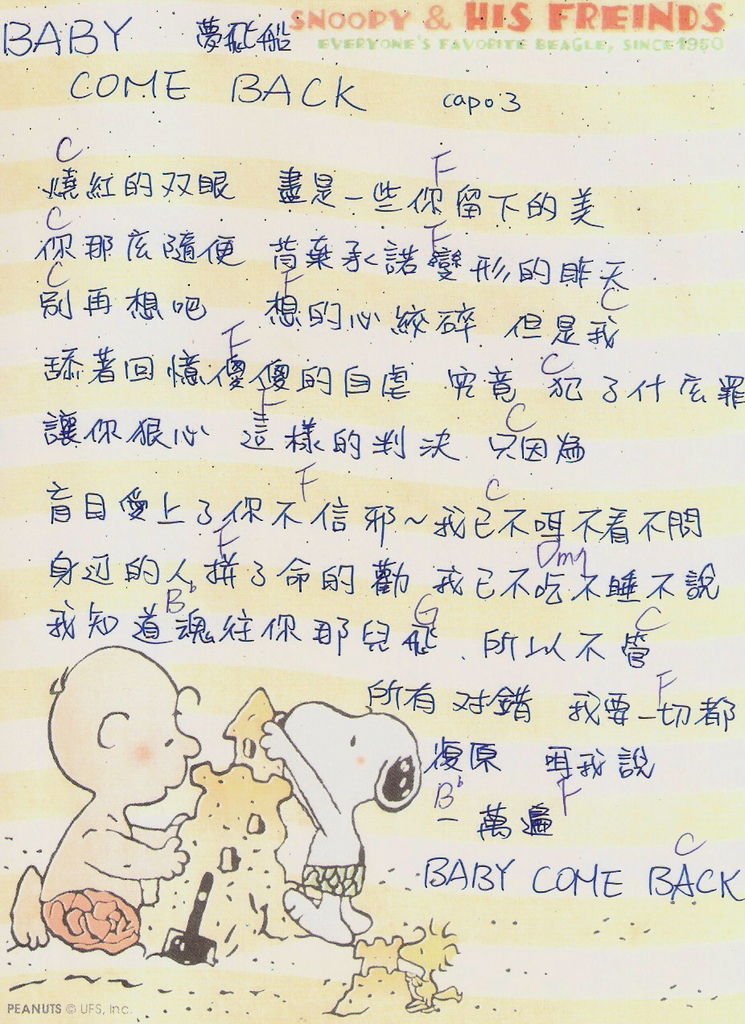 SNOOPY & HIS FREINDS
EVERYONE'S FAVORITE BEAGLE, SINCE 1950
BABY 夢飛船
COME BACK capo 3
C F
燒紅的双眼 盡是一些你留下的美
C F
你那庅隨便 背棄承諾變形的昨天
C F C
別再想吧 想的心絞碎 但是我
F C
舔著回憶傻傻的自虐 究竟犯了什庅罪
F C
讓你狠心 這樣的判決 只因為
F C
盲目愛上了你不信邪~我已不听不看不問
F Dm7
身边的人拼了命的勸 我已不吃不睡不說
B♭ G C
我知道魂往你那兒飛 . 所以不管
F
所有对錯 我要一切都
復原 听我說
B♭ F
一萬遍
C
BABY COME BACK
PEANUTS © UFS, Inc.